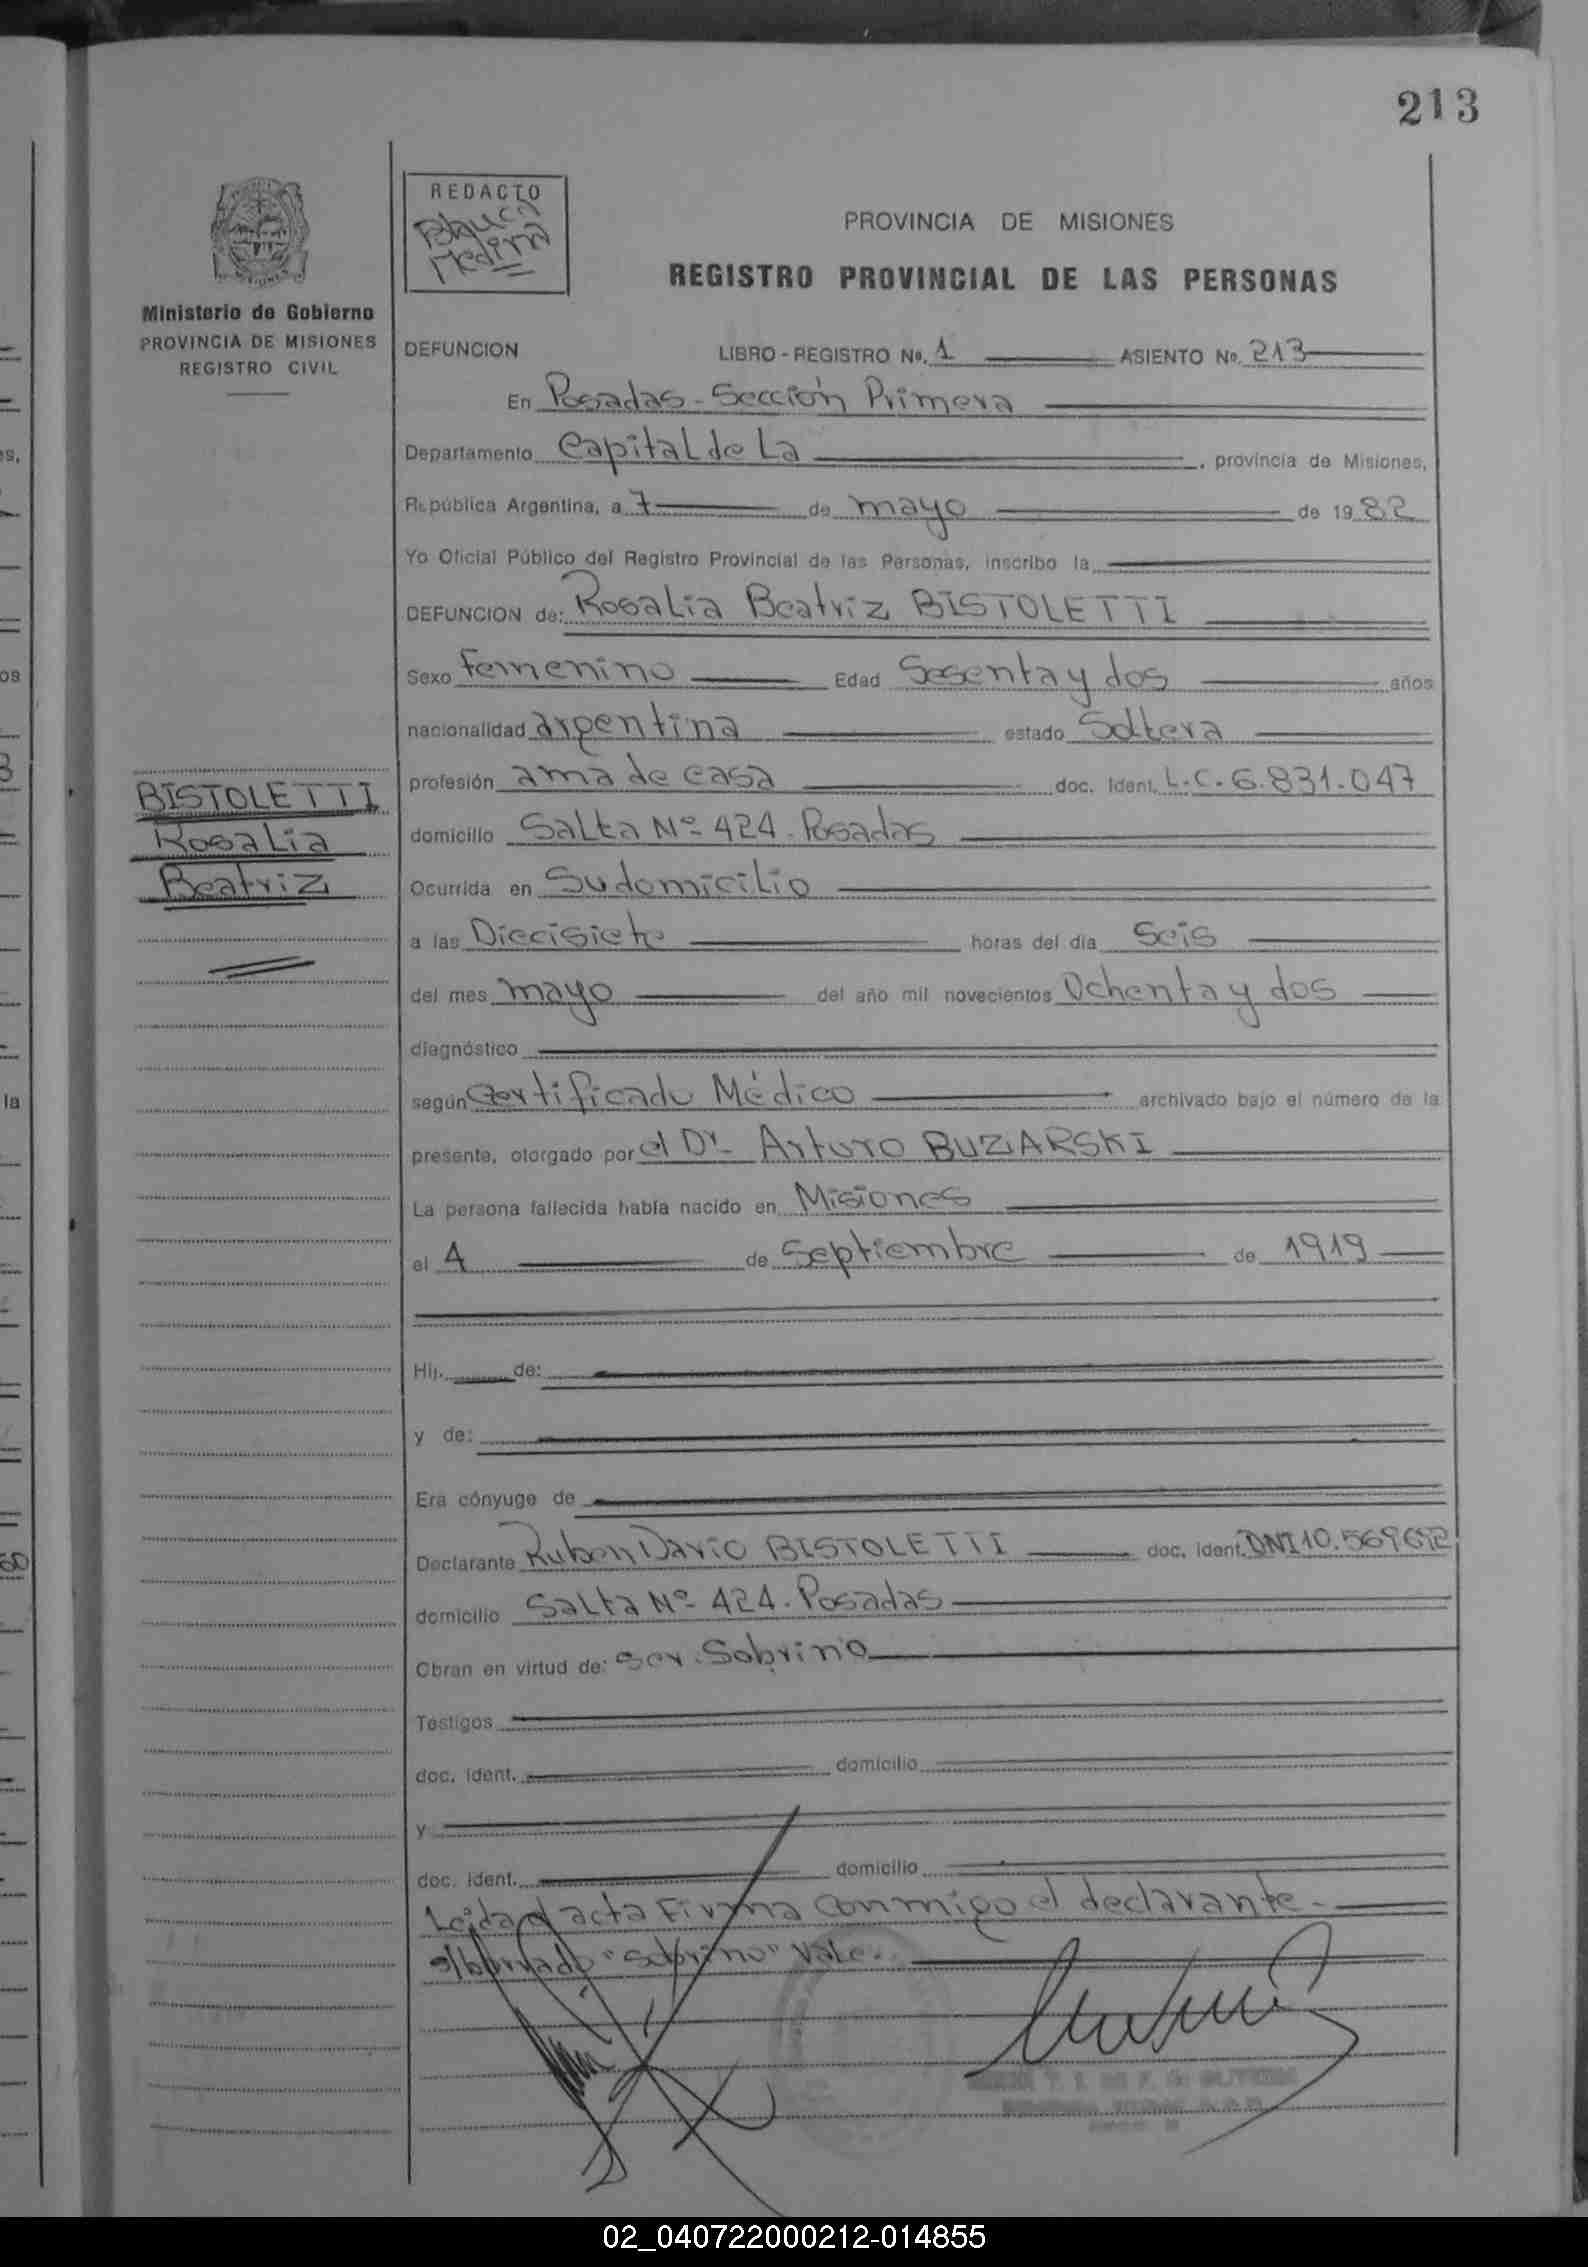 213
REDACTO
Blanca
Medina
PROVINCIA DE MISIONES
REGISTRO PROVINCIAL DE LAS PERSONAS
Ministerio de Gobierno
PROVINCIA DE MISIONES
REGISTRO CIVIL
DEFUNCION LIBRO - REGISTRO No. 1 ASIENTO No. 213
En Posadas - Sección Primera
Departamento Capital de La , provincia de Misiones,
República Argentina, a 7 de mayo de 1982
Yo Oficial Público del Registro Provincial de las Personas, inscribo la
DEFUNCION de: Rosalia Beatriz BISTOLETTI
Sexo Femenino Edad Sesenta y dos años
nacionalidad argentina estado Soltera
BISTOLETTI
Rosalia
Beatriz
profesión ama de casa doc. Ident. L.C. 6.831.047
domicilio Salta Nº 424. Posadas
Ocurrida en Su domicilio
a las Diecisiete horas del día Seis
del mes mayo del año mil novecientos Ochenta y dos
diagnóstico
según Certificado Médico archivado bajo el número de la
presente, otorgado por el Dr. Arturo BUZIARSKI
La persona fallecida había nacido en Misiones
el 4 de Septiembre de 1919
Hij. de:
y de:
Era cónyuge de
Declarante Ruben Dario BISTOLETTI doc. ident. DNI 10.569.692
domicilio Salta Nº 424. Posadas
Obran en virtud de: Ser. Sobrino
Testigos
doc. ident. domicilio
y
doc. ident. domicilio
Leida el acta Firma conmigo el declarante.-
s/borrado "sobrino" Vale.
02_040722000212-014855